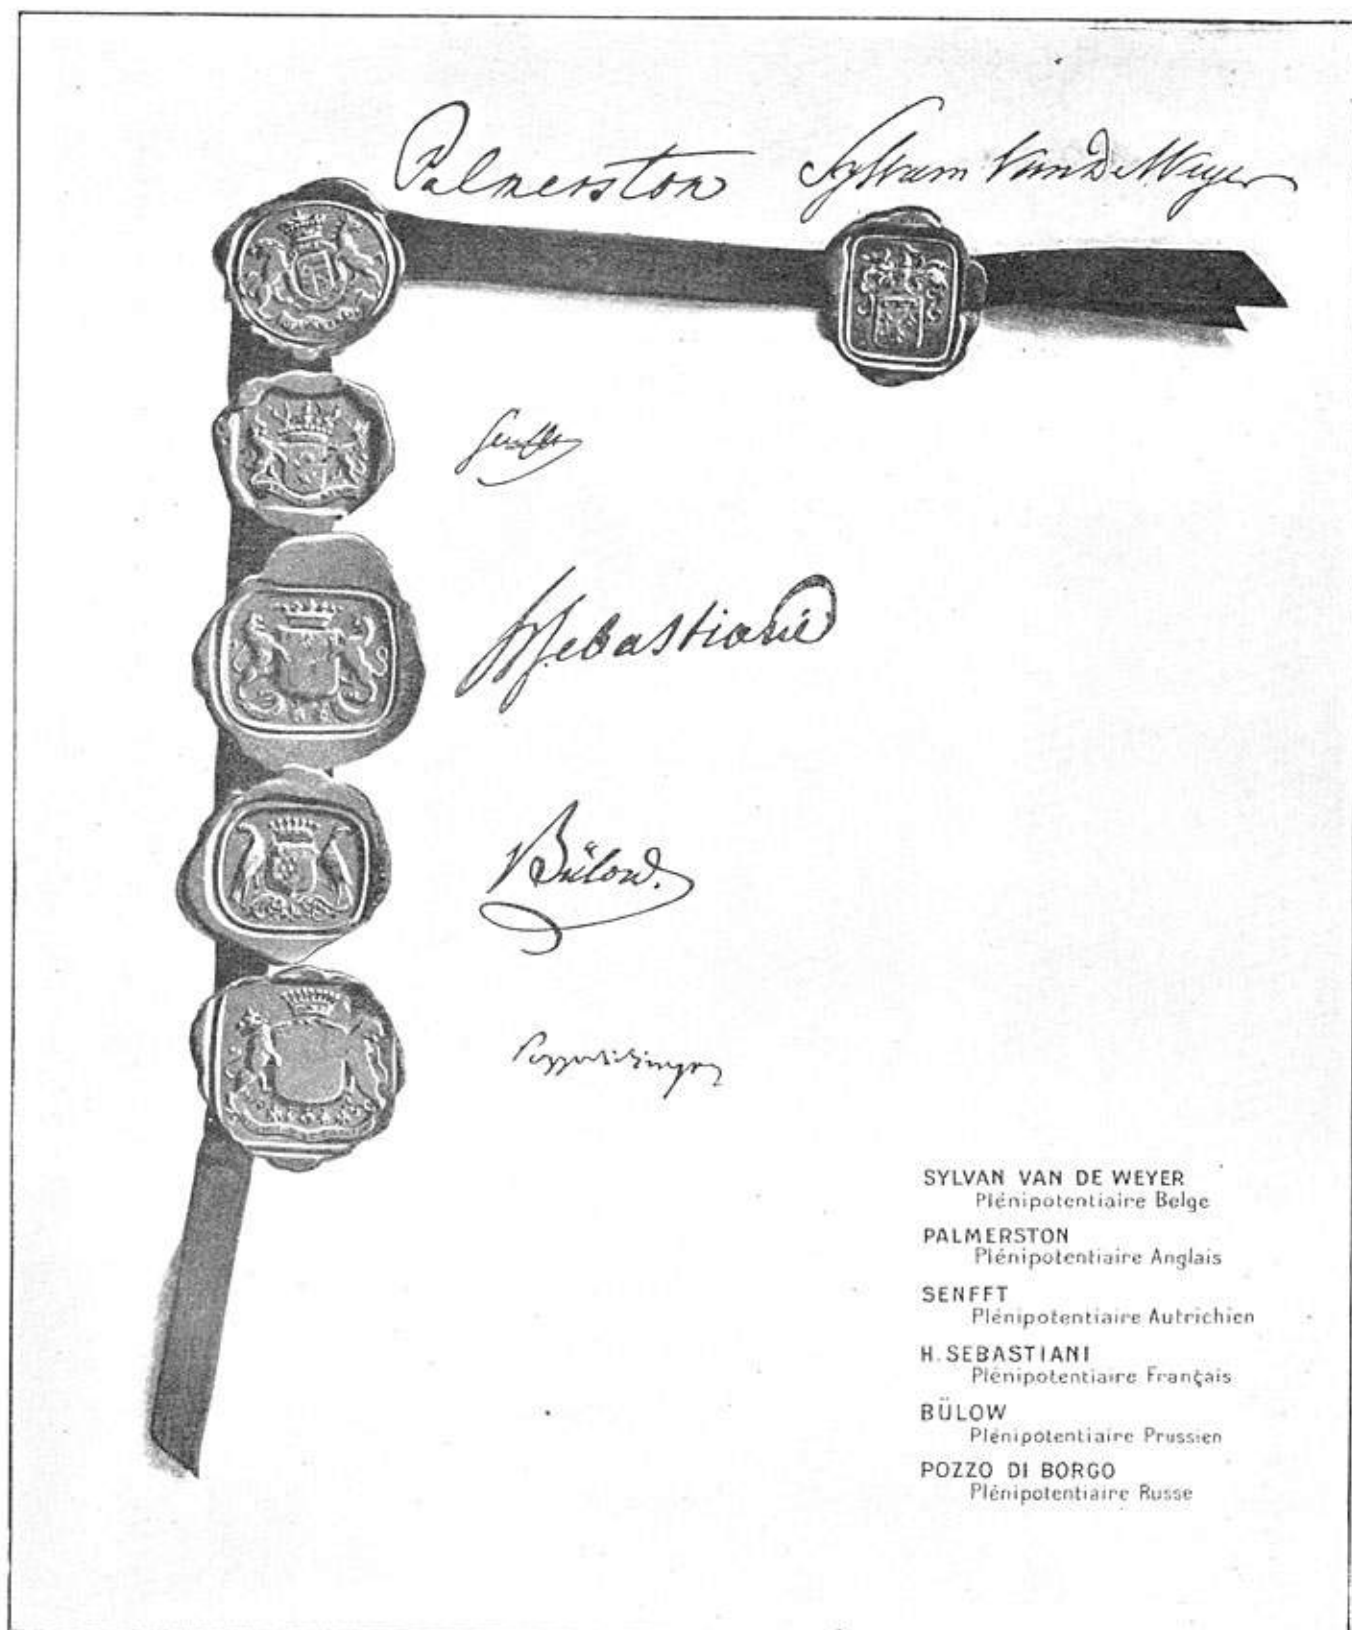 Palmerston Sylvain Van De Weyer
Senfft
H Sebastiani
Bülow.
Pozzo di Borgo
SYLVAN VAN DE WEYER
Plénipotentiaire Belge
PALMERSTON
Plénipotentiaire Anglais
SENFFT
Plénipotentiaire Autrichien
H. SEBASTIANI
Plénipotentiaire Français
BÜLOW
Plénipotentiaire Prussien
POZZO DI BORGO
Plénipotentiaire Russe